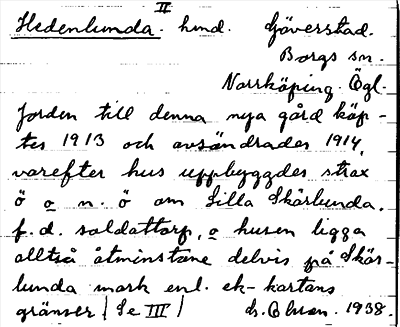 II
Hedenlunda. hmd. Göverstad.
Borgs sn.
Norrköping. Ögl.
Jorden till denna nya gård köp-
tes 1913 och avsöndrades 1914,
varefter hus uppbyggdes strax
ö o n. ö om Lilla Skärlunda.
f.d. soldattorp, o husen ligga
alltså åtminstone delvis på Skär-
lunda mark enl. ek-kartans
gränser (Se III)
1938.